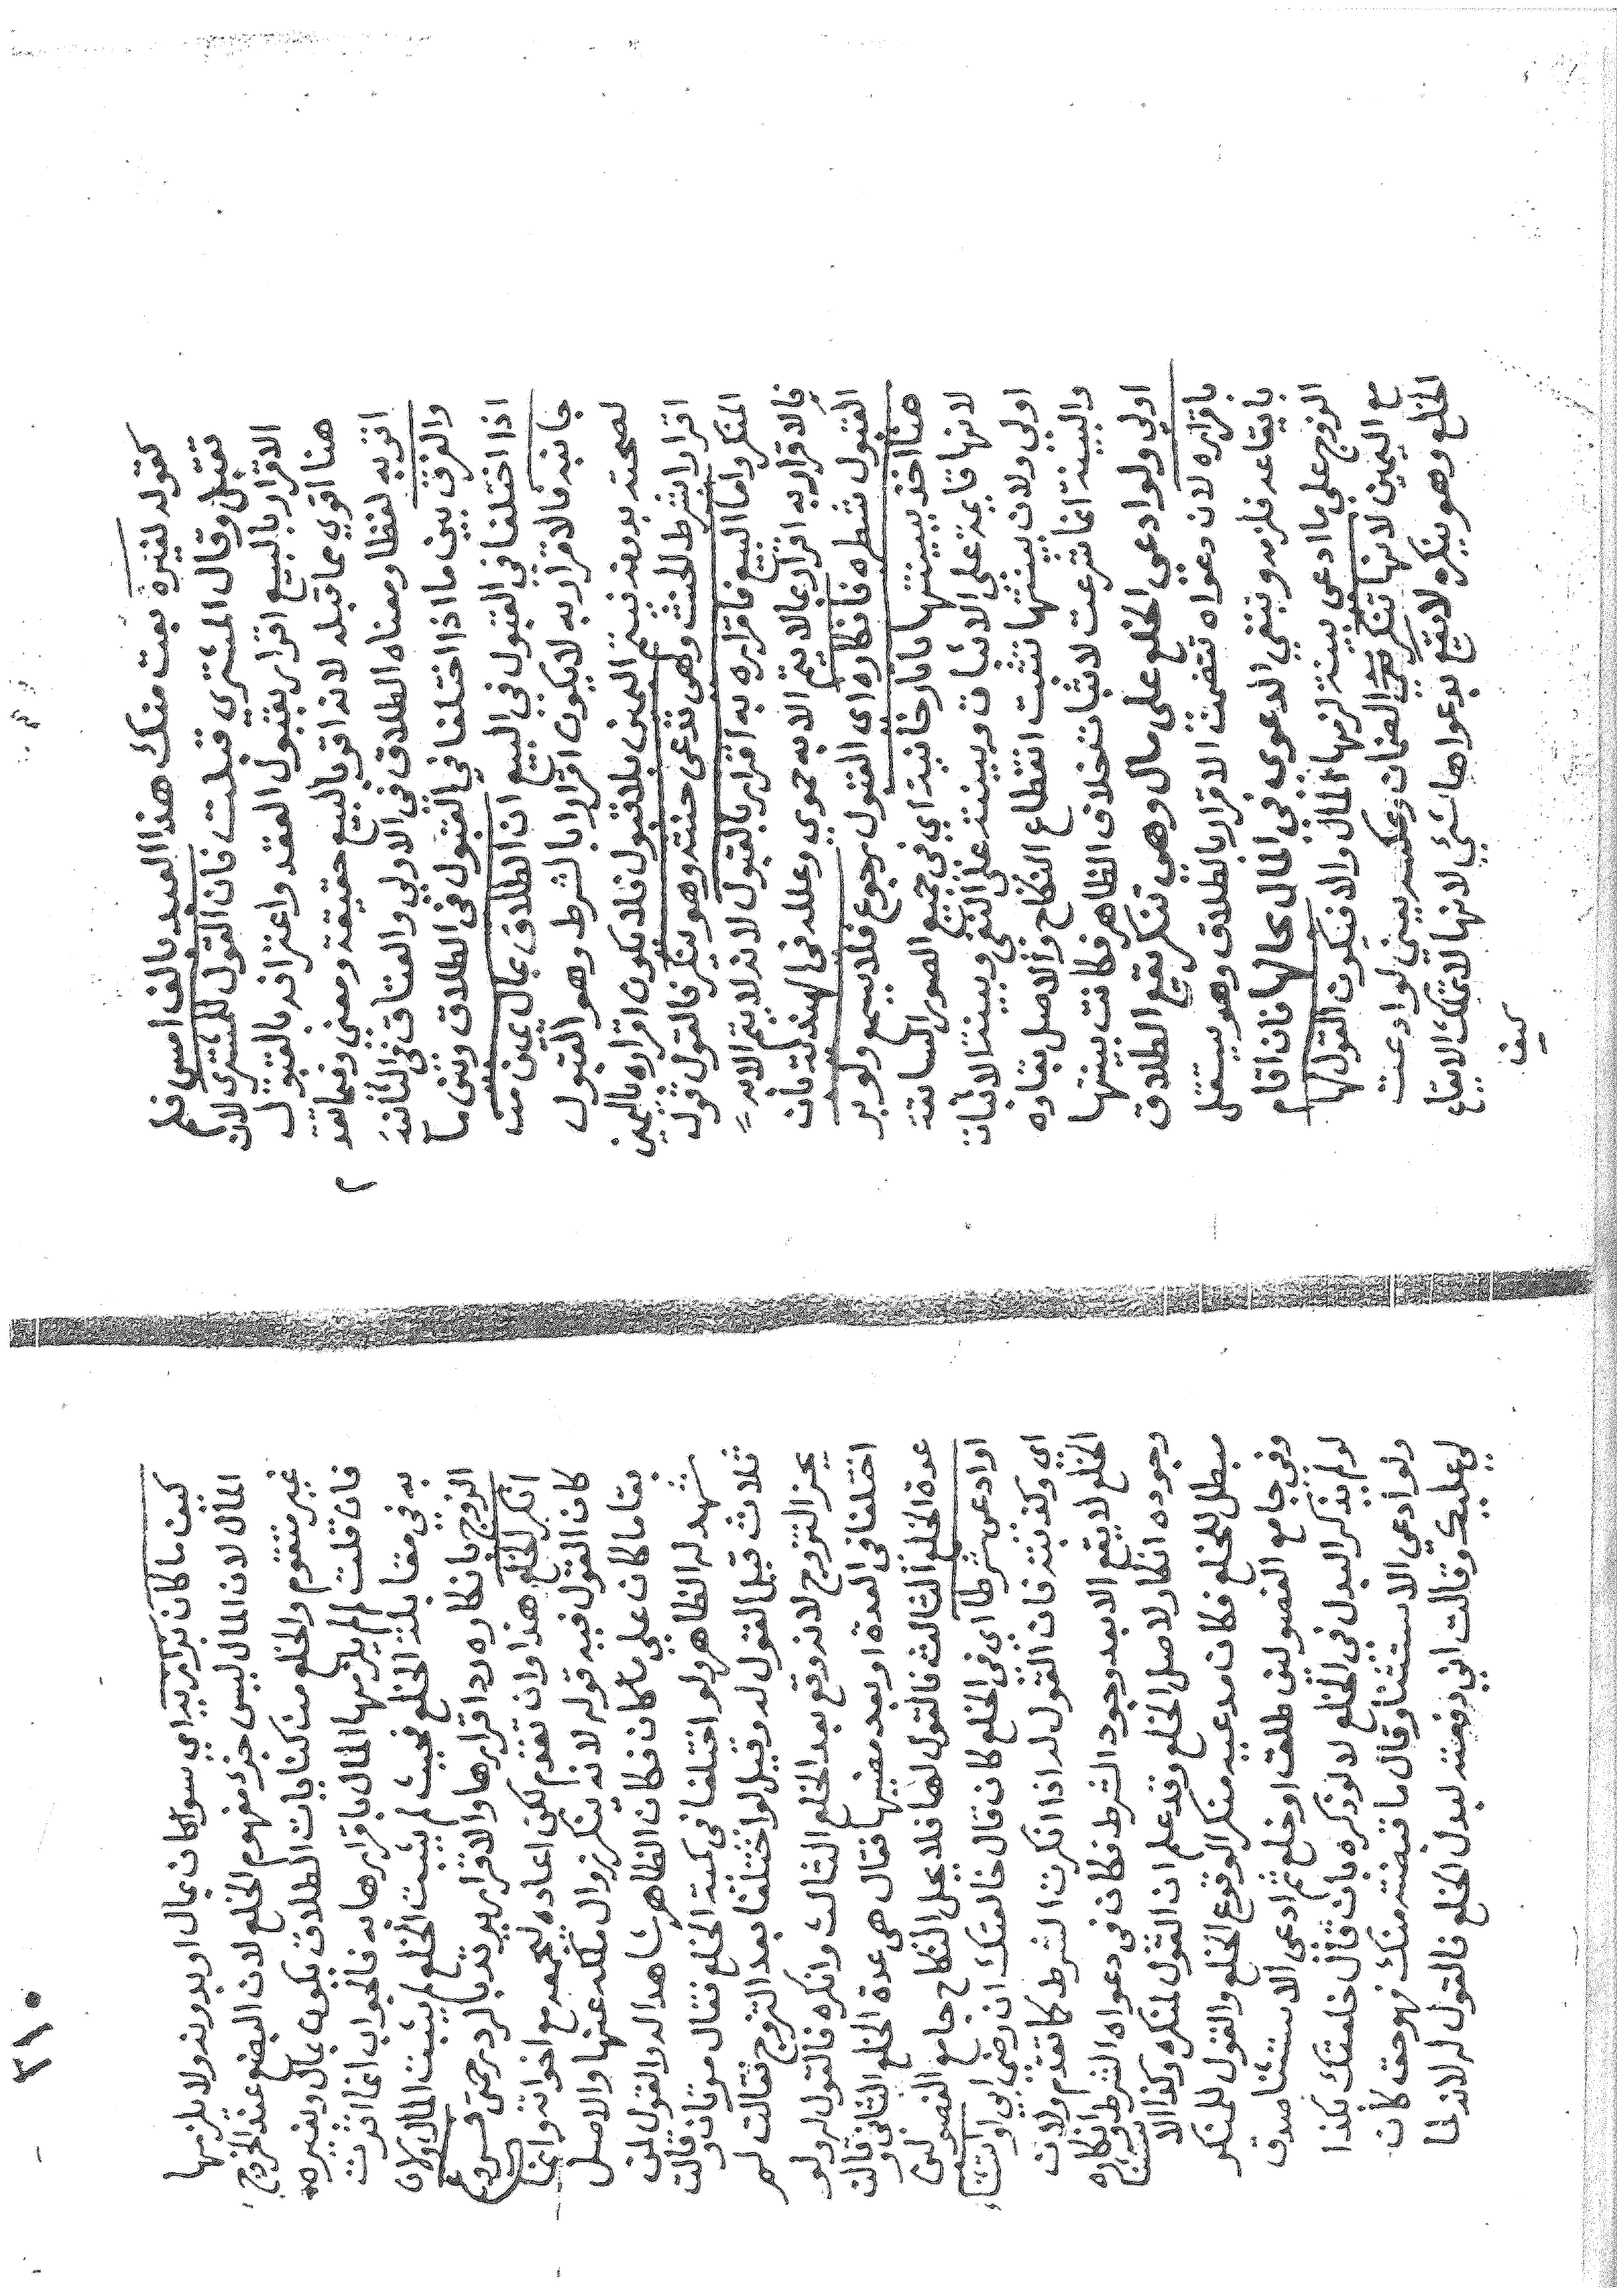 كقوله لغيره بعت منك هذا العبد بالف امس فلم
تقبل وقال المشتري قبلت فان القول للمشتري لان
الاقرار بالبيع اقرار بقبول العقد واعترافه بالقبول
هنا اقوي مما قبله لانه اقر بالبيع حقيقة ومعني وفيما تقدم
اقر به لفظا ومعناه الطلاق في الاولي والعتاق في الثانية
والفرق بين ما اذا اختلفا في القبول في الطلاق وبين ما
اذا اختلفا في القبول في البيع ان الطلاق بمال يمين من
جانبه فالاقرار به لا يكون اقرارا بالشرط وهو القبول
لصحته بدونه فتتم اليمين بلا قبول فلا يكون اقراره باليمين
اقرارا بشرط الحنث وهي تدعي حنثه وهو ينكر فالقول قول
المنكر واما البيع فاقراره به اقرار بالقبول لانه لا يتم الا به
فالاقرار به اقرار بما لا يتم الا به حموي وعلله في الهندية بان
القبول شطره فانكاره اي القبول رجوع فلا يسمع ولو بر
هنا اخذ ببينتها تاتارخانية اي في جميع الصور السابقة
لانها قايمة على الاثبات وبينته على النفي وبينة الاثبات
اولى ولان بينتها تثبت انقطاع النكاح والاصل بقاوه
والبينة انما شرعت لاثبات خلاف الظاهر فكانت بينتها
اولي ولو ادعي الخلع على مال وهي تنكر يقع الطلاق
باقراره لان دعواه تضمنت الاقرار بالطلاق وهو يستقل
بايقاعه فلزمه وتبقي الدعوي في المال بحالها فان اقام
الزوج علي ما ادعي بينة لزمها المال والا فيكون القول لها
مع اليمين لانها تنكر الضمان وعكسه يعني لو ادعت
الخلع وهو ينكره لا يقع بدعواها شئ لانها لا تملك الايقاع
كيف
٢١٠
كيف ما كان بزازيه اي سوا كان بمال او بدونه ولا يلزمها
المال لان المال ليس جزء مفهوم الخلع لان البضع عند الخروج
غير متقوم والخلع من كنايات الطلاق يكون بمال وبغيره
فان قلت لم لم يلزمها المال باقرارها به فالجواب انما اقرت
به في مقابلة الخلع فحيث لم يثبت الخلع لم يثبت المال ولان
الزوج بانكاره رد اقرارها والاقرار يرتد بالرد رحمتي فروع
انكر الخلع هذا وان تقدم لكن اعاده ليجمعه مع اخواته وانما
كان القول فيه قوله لانه ينكر زوال ملكه عنها والاصل
بقا ما كان علي ما كان فكان الظاهر شاهدا له والقول لمن
شهد له الظاهر ولو اختلفا في كمية الخلع فقال مرتان وقالت
ثلاث قيل القول له وقيل لو اختلفا بعد التزوج فقالت لم
يجز التزوج لانه وقع بعد الخلع الثالث وانكره فالقول له ولو
اختلفا في العدة او بعد مضيها فقال هي عدة الخلع الثاني وقالت
عدة الخلع الثالث فالقول لها فلا يحل النكاح جامع الفصولين
او ادعى شرطا اي في الخلع كان قال خالعتك ان رضي ابي او استثنا
اي وكذبته فان القول له اذا انكرت الشرط كما تقدم ولان
الخلع لا يقع الا بعد وجود الشرط فكان في دعواه الشرط وانكاره
وجوده انكار لاصل الخلع وقد علم ان القول لمنكره وكذا الاستثنا
مبطل للخلع فكان مدعيه منكر الوقوع الخلع والقول للمنكر
وفي جامع الفصولين طلقت او خلع ثم ادعى الاستثنا صدق
لو لم يذكر البدل في الخلع لا لو ذكره بان قال خلعتك بكذا
ولو ادعي الاستثنا وقال ما قبضته منك فهو حق كان
لي عليك وقالت اني دفعته لبدل الخلع فالقول له لانه لما